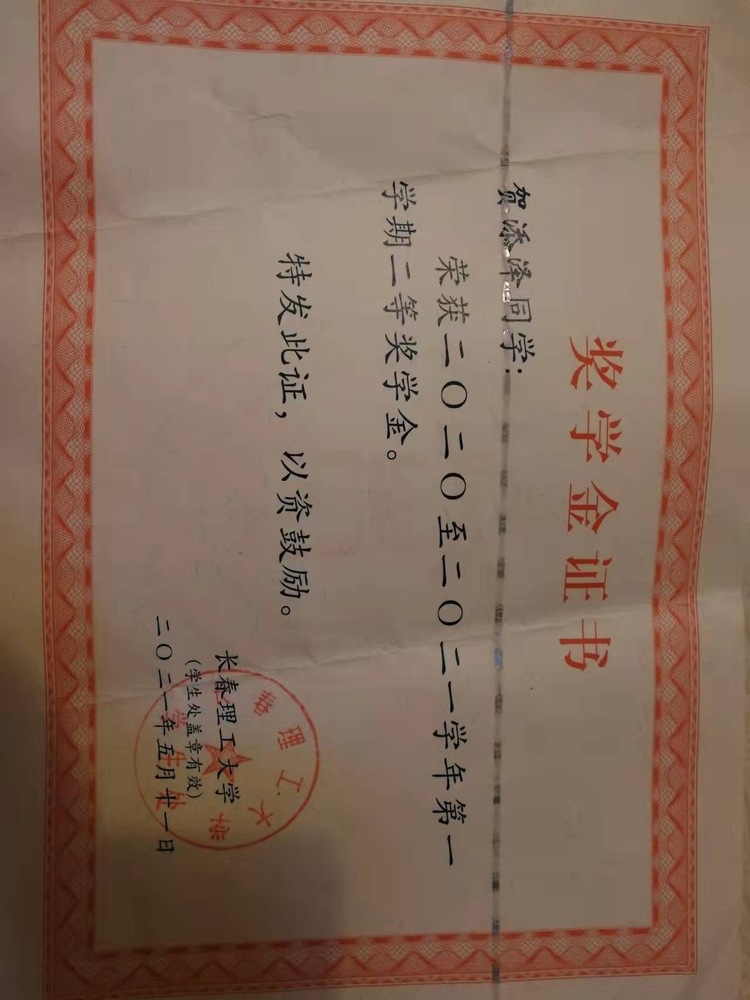 奖学金证书
贺添泽同学：
荣获二〇二〇至二〇二一学年第一
学期二等奖学金。
特发此证，以资鼓励。
长春理工大学
（学生处盖章有效）
二〇二一年五月廿一日